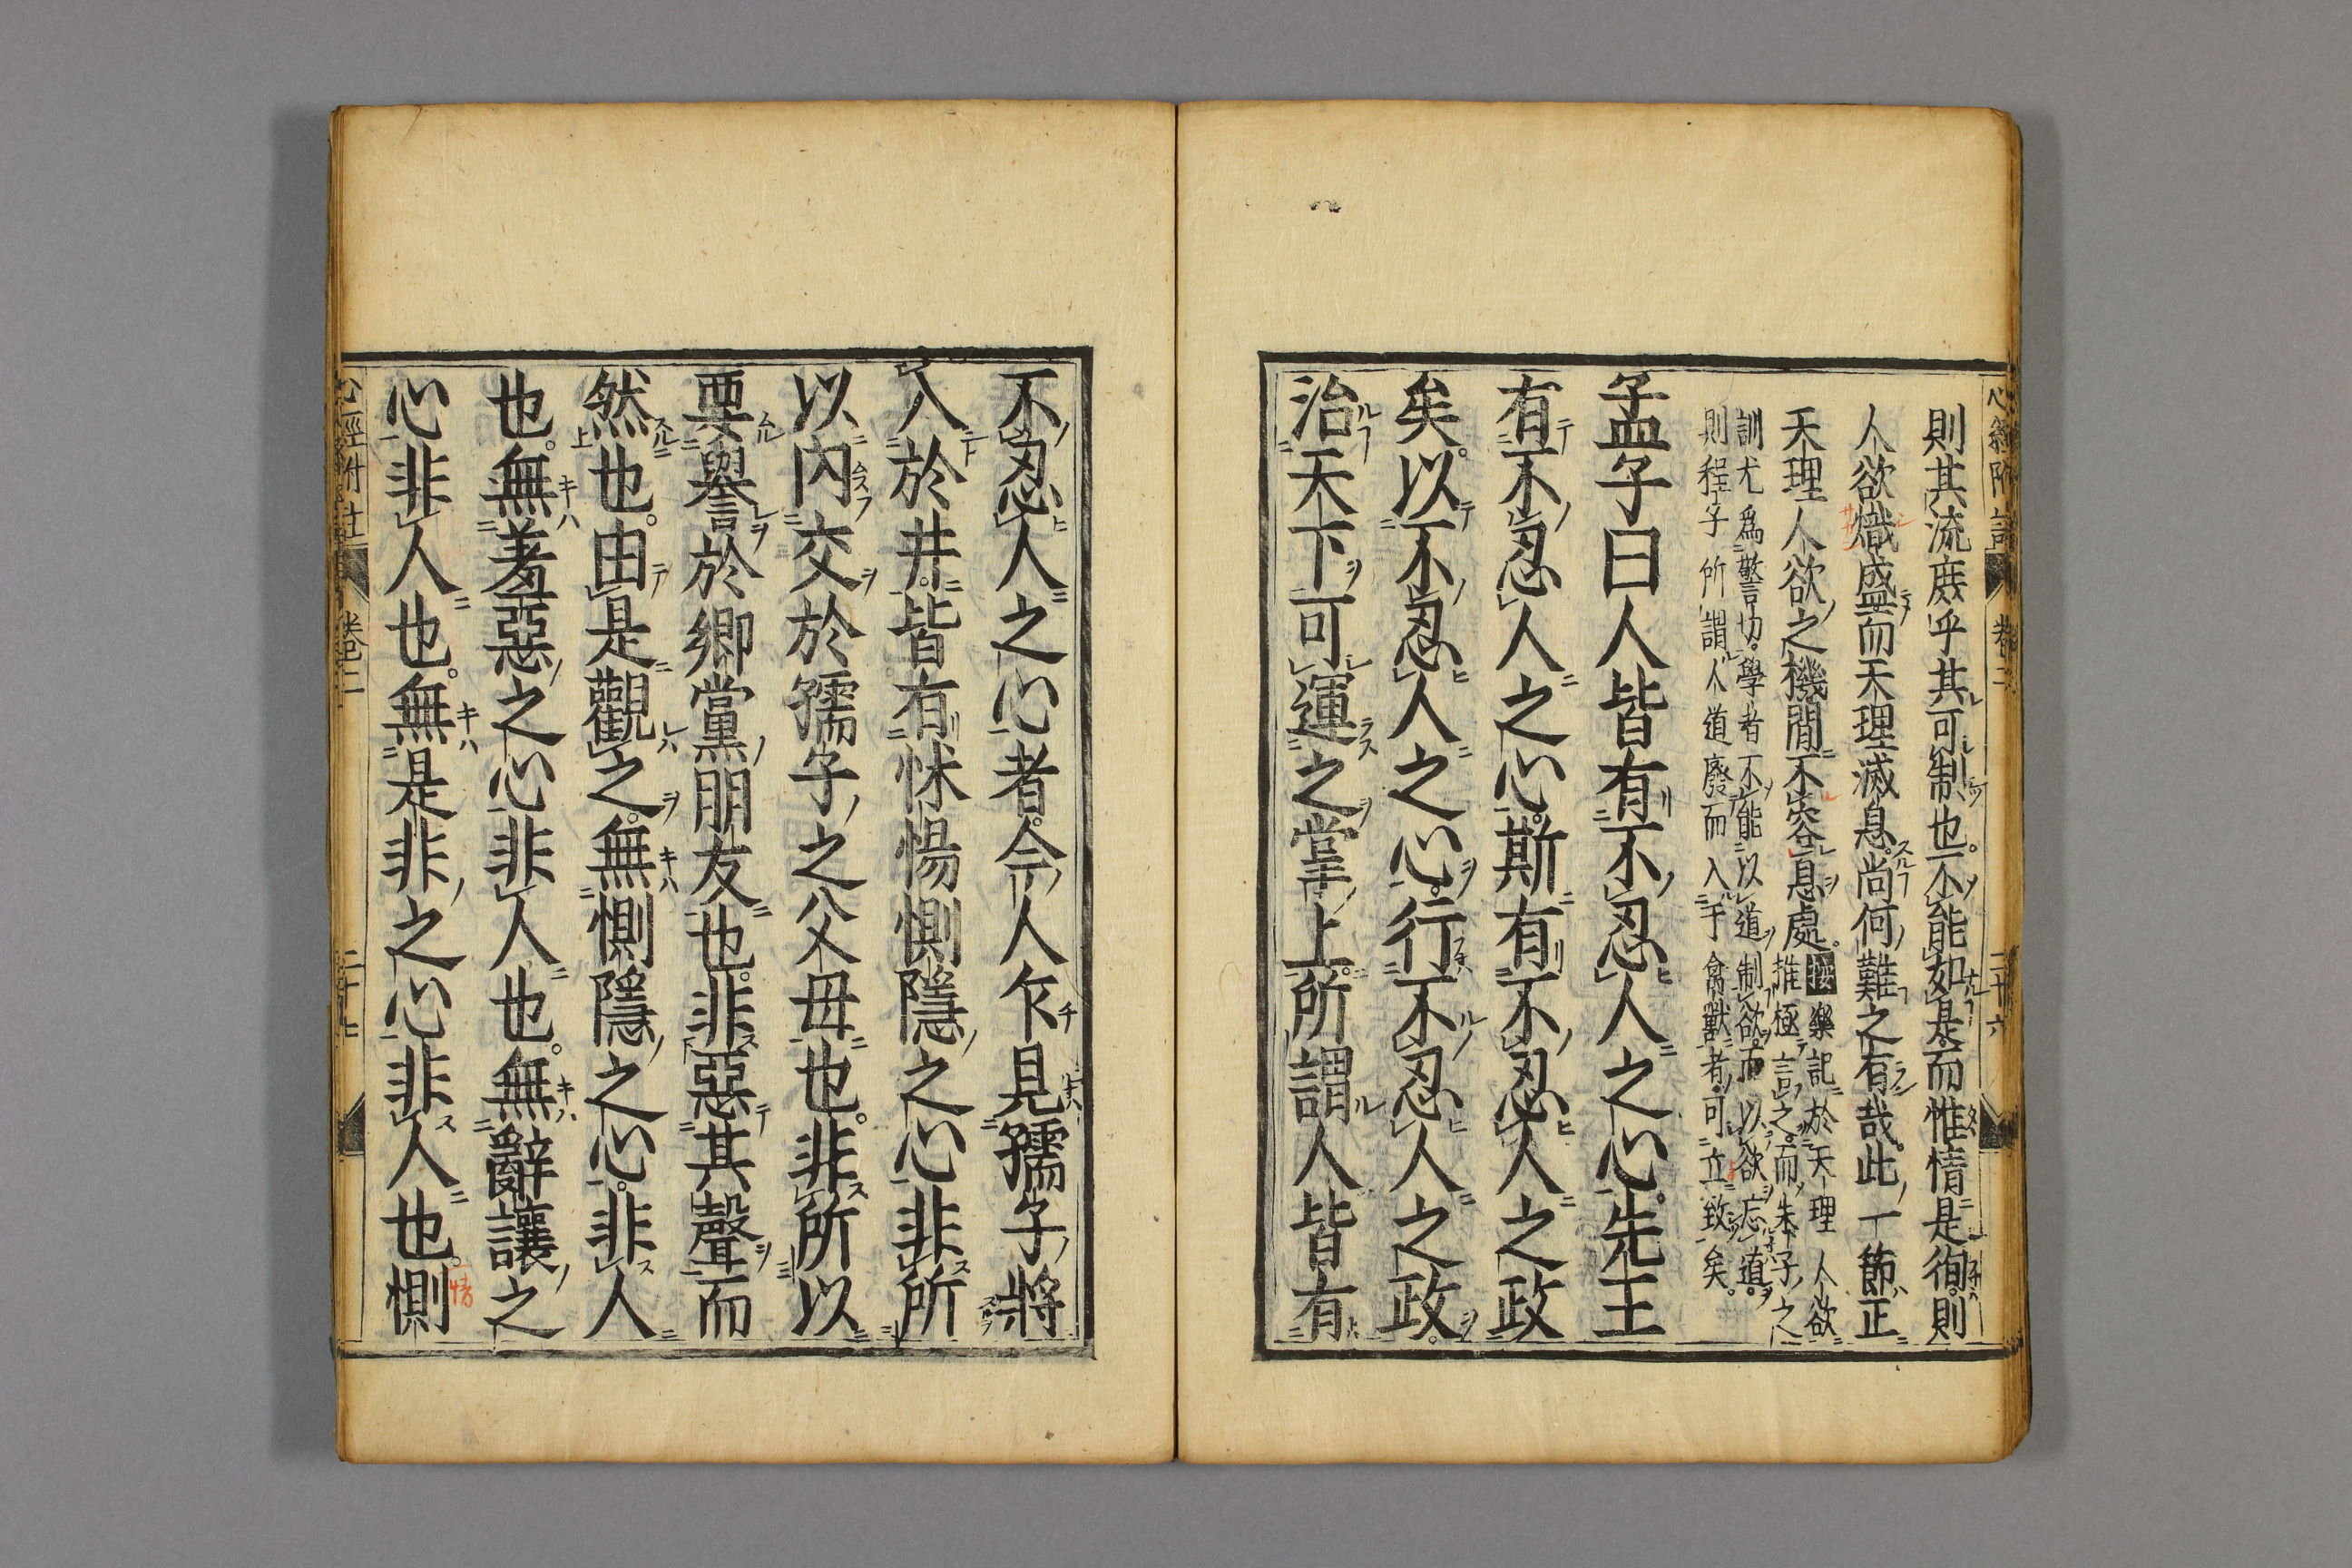 心經附註 卷二 二十六
則其流庶乎其可制也。不能如是而惟情是徇。則
人欲熾盛而天理滅息。尚何難之有哉。此一節正
天理人欲之機間不容息處。按樂記於天理人欲
推極言之。而朱子之
訓尤爲警切。學者不能以道制欲。而以欲忘道。
則程子所謂人道廢而入于禽獸者。可立致矣。
孟子曰人皆有不忍人之心。先王
有不忍人之心。斯有不忍人之政
矣。以不忍人之心。行不忍人之政。
治天下。可運之掌上。所謂人皆有
不忍人之心者。今人乍見孺子將
入於井。皆有怵惕惻隱之心非所
以內交於孺子之父母也。非所以
要譽於鄉黨朋友也。非惡其聲而
然也。由是觀之。無惻隱之心。非人
也。無羞惡之心非人也。無辭讓之
心非人也。無是非之心非人也。惻
情
心經附註 卷二 二十七